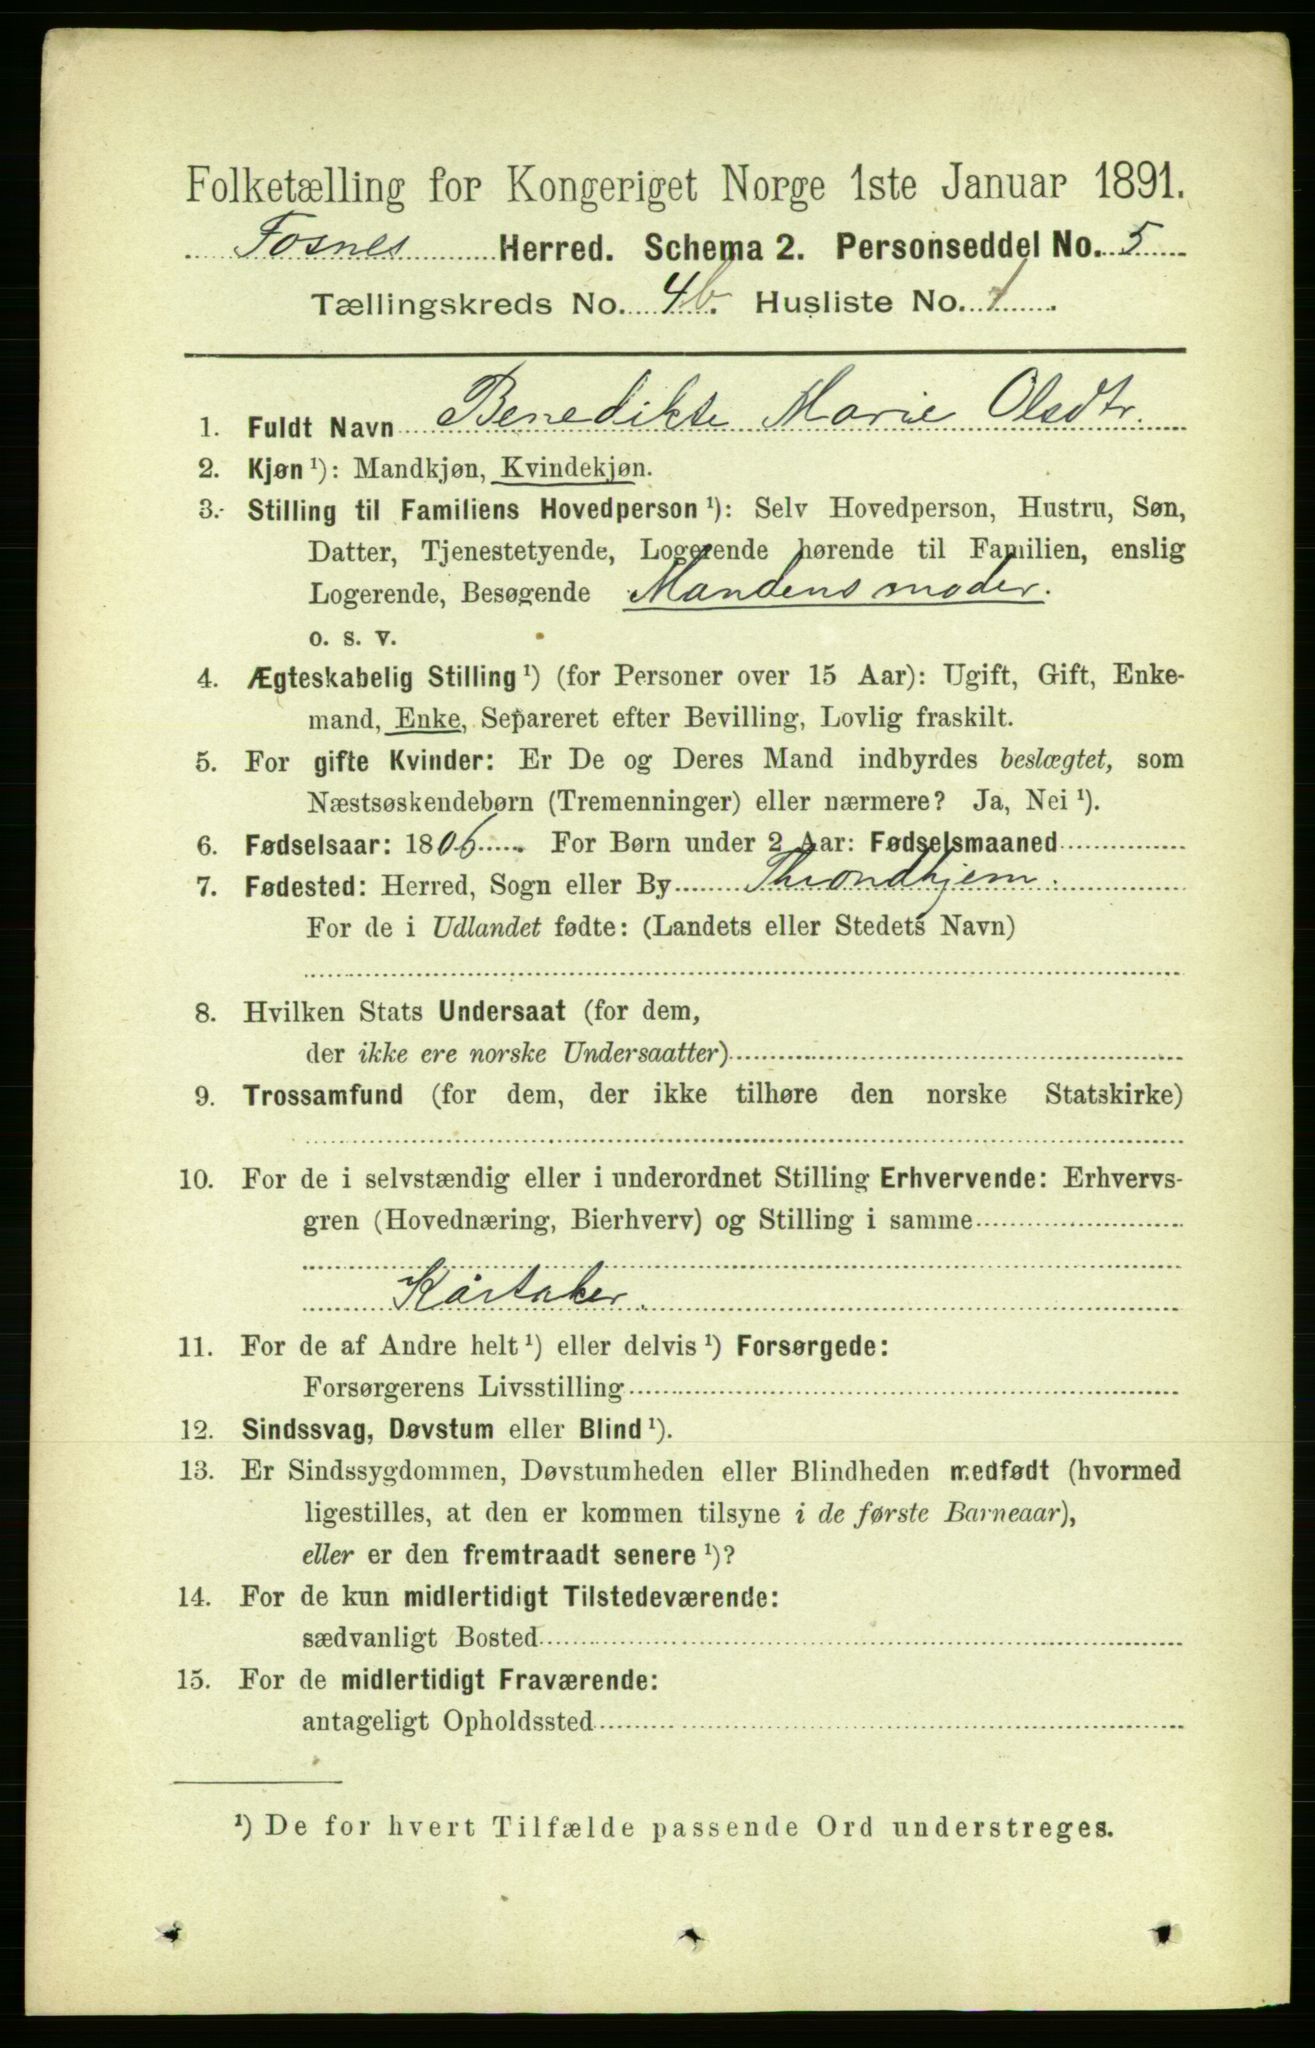 Folketælling for Kongeriget Norge 1ste Januar 1891.
Fosnes Herred. Schema 2. Personseddel No. 5
Tællingskreds No. 4b. Husliste No. 1
1. Fuldt Navn Benedikte Marie Olsdtr.
2. Kjøn ¹): Mandkjøn, Kvindekjøn.
3. Stilling til Familiens Hovedperson ¹): Selv Hovedperson, Hustru, Søn,
Datter, Tjenestetyende, Logerende hørende til Familien, enslig
Logerende, Besøgende Mandens moder.
o. s. v.
4. Ægteskabelig Stilling ¹) (for Personer over 15 Aar): Ugift, Gift, Enke-
mand, Enke, Separeret efter Bevilling, Lovlig fraskilt.
5. For gifte Kvinder: Er De og Deres Mand indbyrdes beslægtet, som
Næstsøskendebørn (Tremenninger) eller nærmere? Ja, Nei ¹).
6. Fødselsaar: 1806 For Børn under 2 Aar: Fødselsmaaned
7. Fødested: Herred, Sogn eller By Throndhjem.
For de i Udlandet fødte: (Landets eller Stedets Navn)
8. Hvilken Stats Undersaat (for dem,
der ikke ere norske Undersaatter)
9. Trossamfund (for dem, der ikke tilhøre den norske Statskirke)
10. For de i selvstændig eller i underordnet Stilling Erhvervende: Erhvervs-
gren (Hovednæring, Bierhverv) og Stilling i samme
Kårtaker.
11. For de af Andre helt ¹) eller delvis ¹) Forsørgede:
Forsørgerens Livsstilling
12. Sindssvag, Døvstum eller Blind ¹).
13. Er Sindssygdommen, Døvstumheden eller Blindheden medfødt (hvormed
ligestilles, at den er kommen tilsyne i de første Barneaar),
eller er den fremtraadt senere ¹)?
14. For de kun midlertidigt Tilstedeværende:
sædvanligt Bosted
15. For de midlertidigt Fraværende:
antageligt Opholdssted
¹) De for hvert Tilfælde passende Ord understreges.